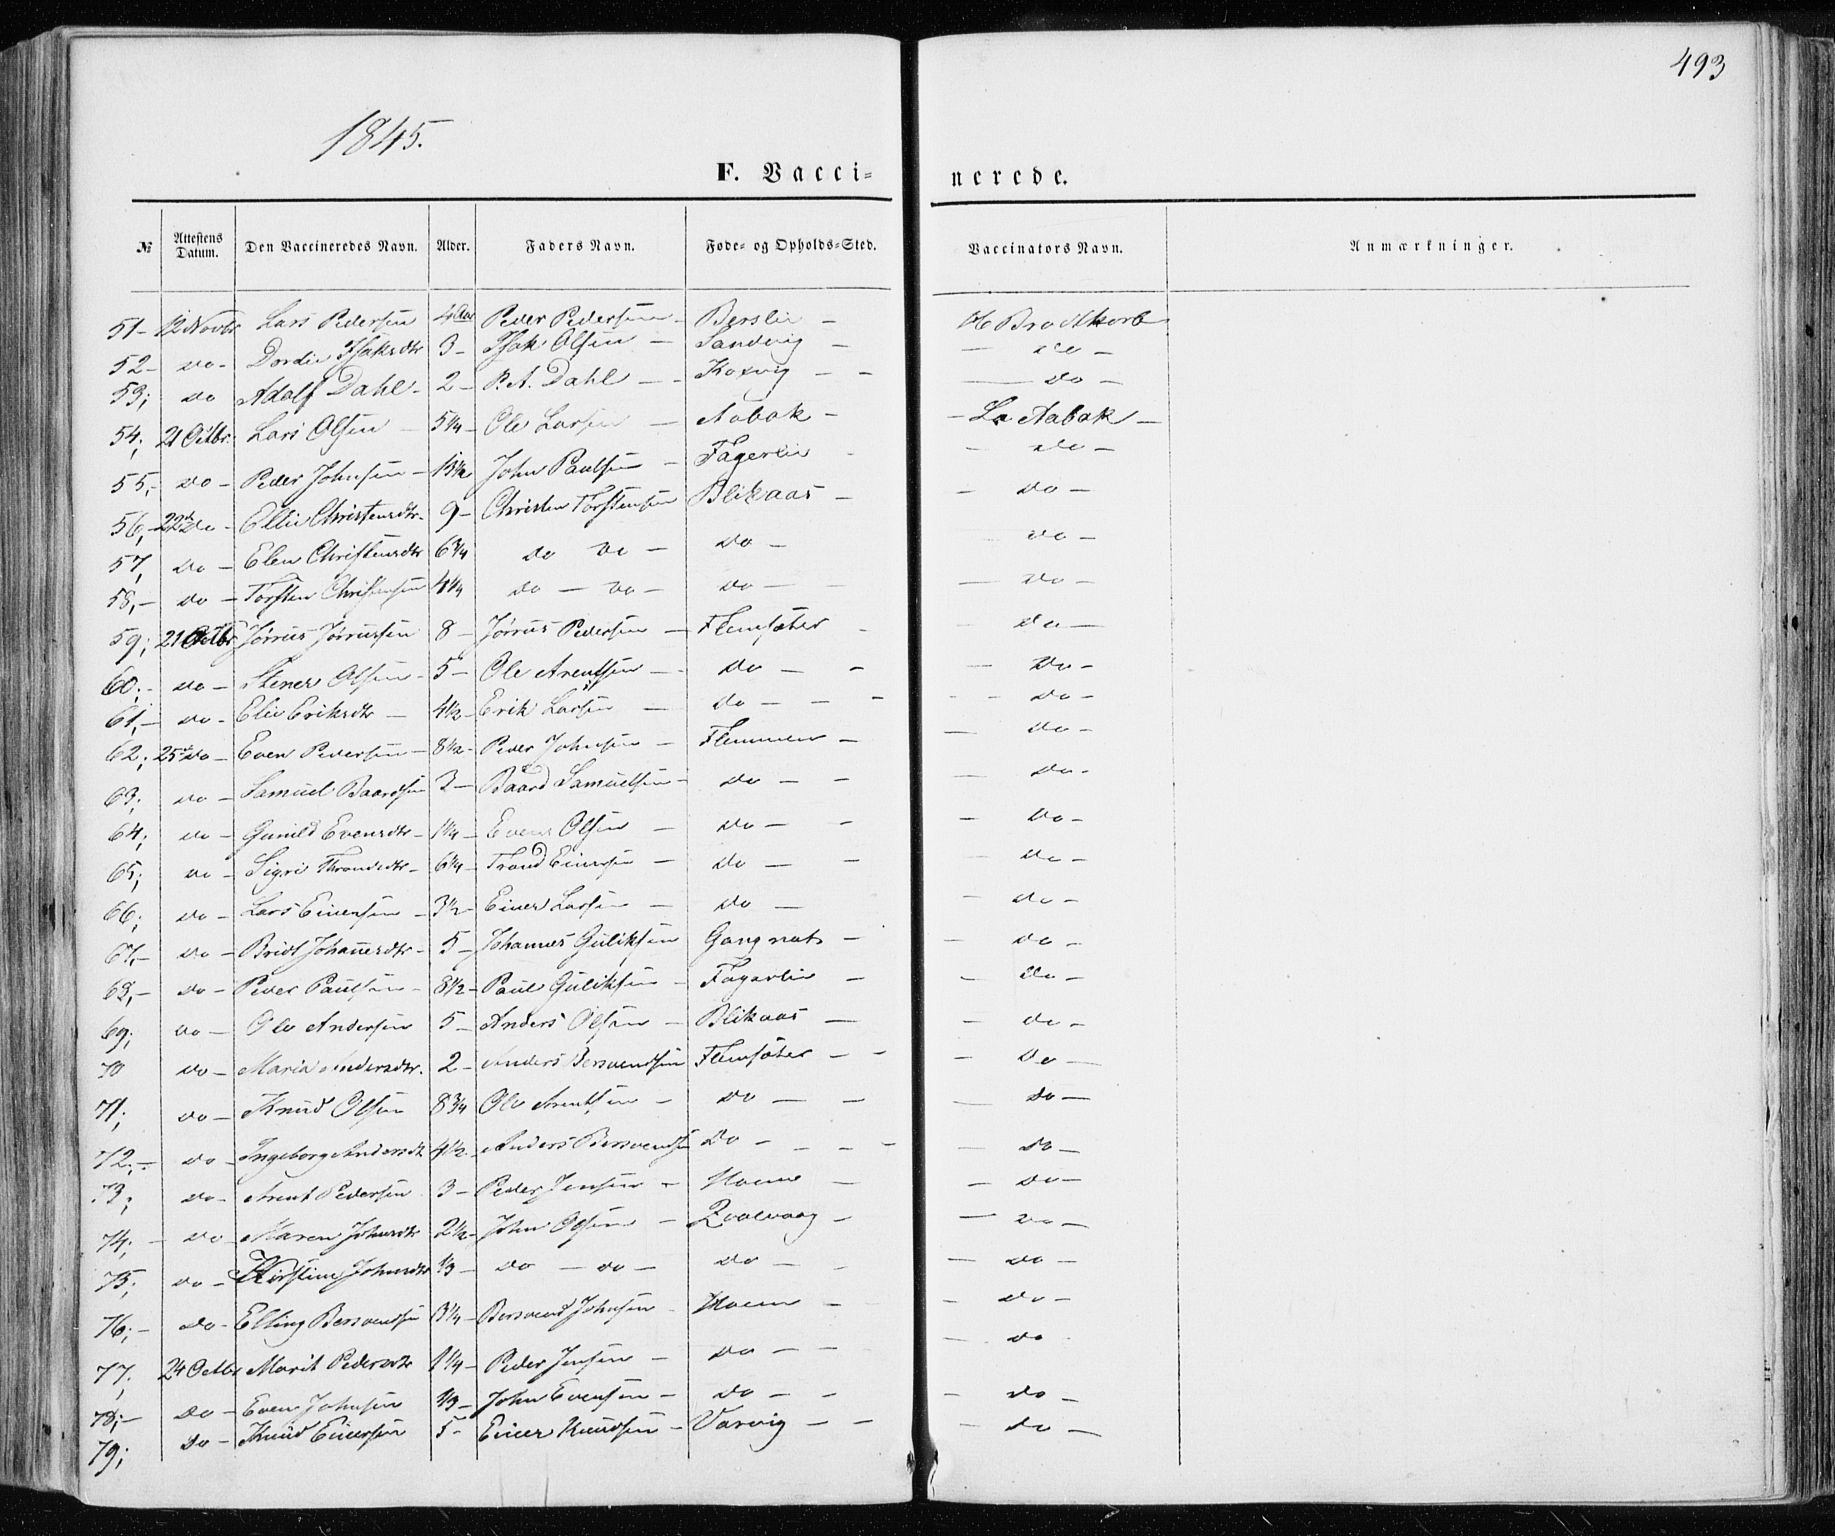 493
1845.
F. Vacci= nerede.
№ Attestens Datum. Den Vaccineredes Navn. Alder. Faders Navn. Føde= og Opholds=Sted. Vaccinators Navn. Anmærkninger.
51- 12 Novbr Lars Pedersen 4 Aar Peder Pedersen - Berslie - Brodtkorb
52- do- Dordie Isaksdtr 3- Isak Olsen - Sandvig - - do -
53; do Adolf Dahl- 2- P.A. Dahl - - Koxvig - - - do -
54; 21 Octbr. Lars Olsen - 5 1/4- Ole Larsen - Aabak - - Ls Aabak -
55,- do- Peder Johnsen- 13 1/2 John Paulsen - Fagerlie - - do -
56,- 22d do- Ellie Christensdtr. 9- Christen Torstensen Blikaas - - do -
57, do- Elen Christensdtr 6 3/4 do do - do - - do -
58,- do- Torsten Christensen 4 1/4 do - do - do - - - do -
59; 21 Octbr Jørrus Jørrussen 8- Jørrus Pedersen - Flemsæter - - do -
60;- do- Stener Olsen- 5- Ole Arentsen - do - - - do -
61,- do- Elie Eriksdtr - 4 1/2- Erik Larsen - do - - - - - do -
62; 25d do- Even Pedersen- 8 1/2- Peder Johnsen - Flemmen - - do -
63; do- Samuel Baardsen 3- Baard Samuelsen- do - - - do -
64; do- Gunild Evensdtr- 1 1/4- Even Olsen - do - - - do -
65; do- Sigri Throndsdtr- 6 1/4- Trond Einersen - do - - - do -
66; do- Lars Einersen- 3 1/2- Einer Larsen - do - - do -
67,- do- Bridt Johanesdtr- 5- Johannes Guliksen Gangnat - - do -
68,- do- Peder Paulsen- 8 1/2- Paul Guliksen - Fagerlie - - do -
69; do- Ole Andersen 5- Anders Olsen - Blikaas - - do -
70 do- Maria Andersdtr. 2- Anders Bersvendsen Flemsæter - - - do -
71; do- Knud Olsen 8 3/4 Ole Arentsen - do - - - do -
72;- do- Ingeborg Andersdtr 4 1/2- Anders Bersvendsen Do - - - - - do -
73; do- Arent Pedersen 3- Peder Jensen - Moene - - do -
74;- do- Maren Johnsdtr 2 1/2- John Olsen - - - do -
75; do- Kirstine Johnsdtr 1/3- do - do - do - - - do -
76;- do- Elling Bersvendsen 3 1/4- Bersvend Johnsen Moene - - do -
77; 24 Octbr Marit Pedersdtr 1 1/4- Peder Jensen - do - - - do -
78;- do- Even Johnsen 1/3- John Evensen - do - - - do -
79; do- Knud Einersen 5- Einer Knudsen - Varvig - - - do -